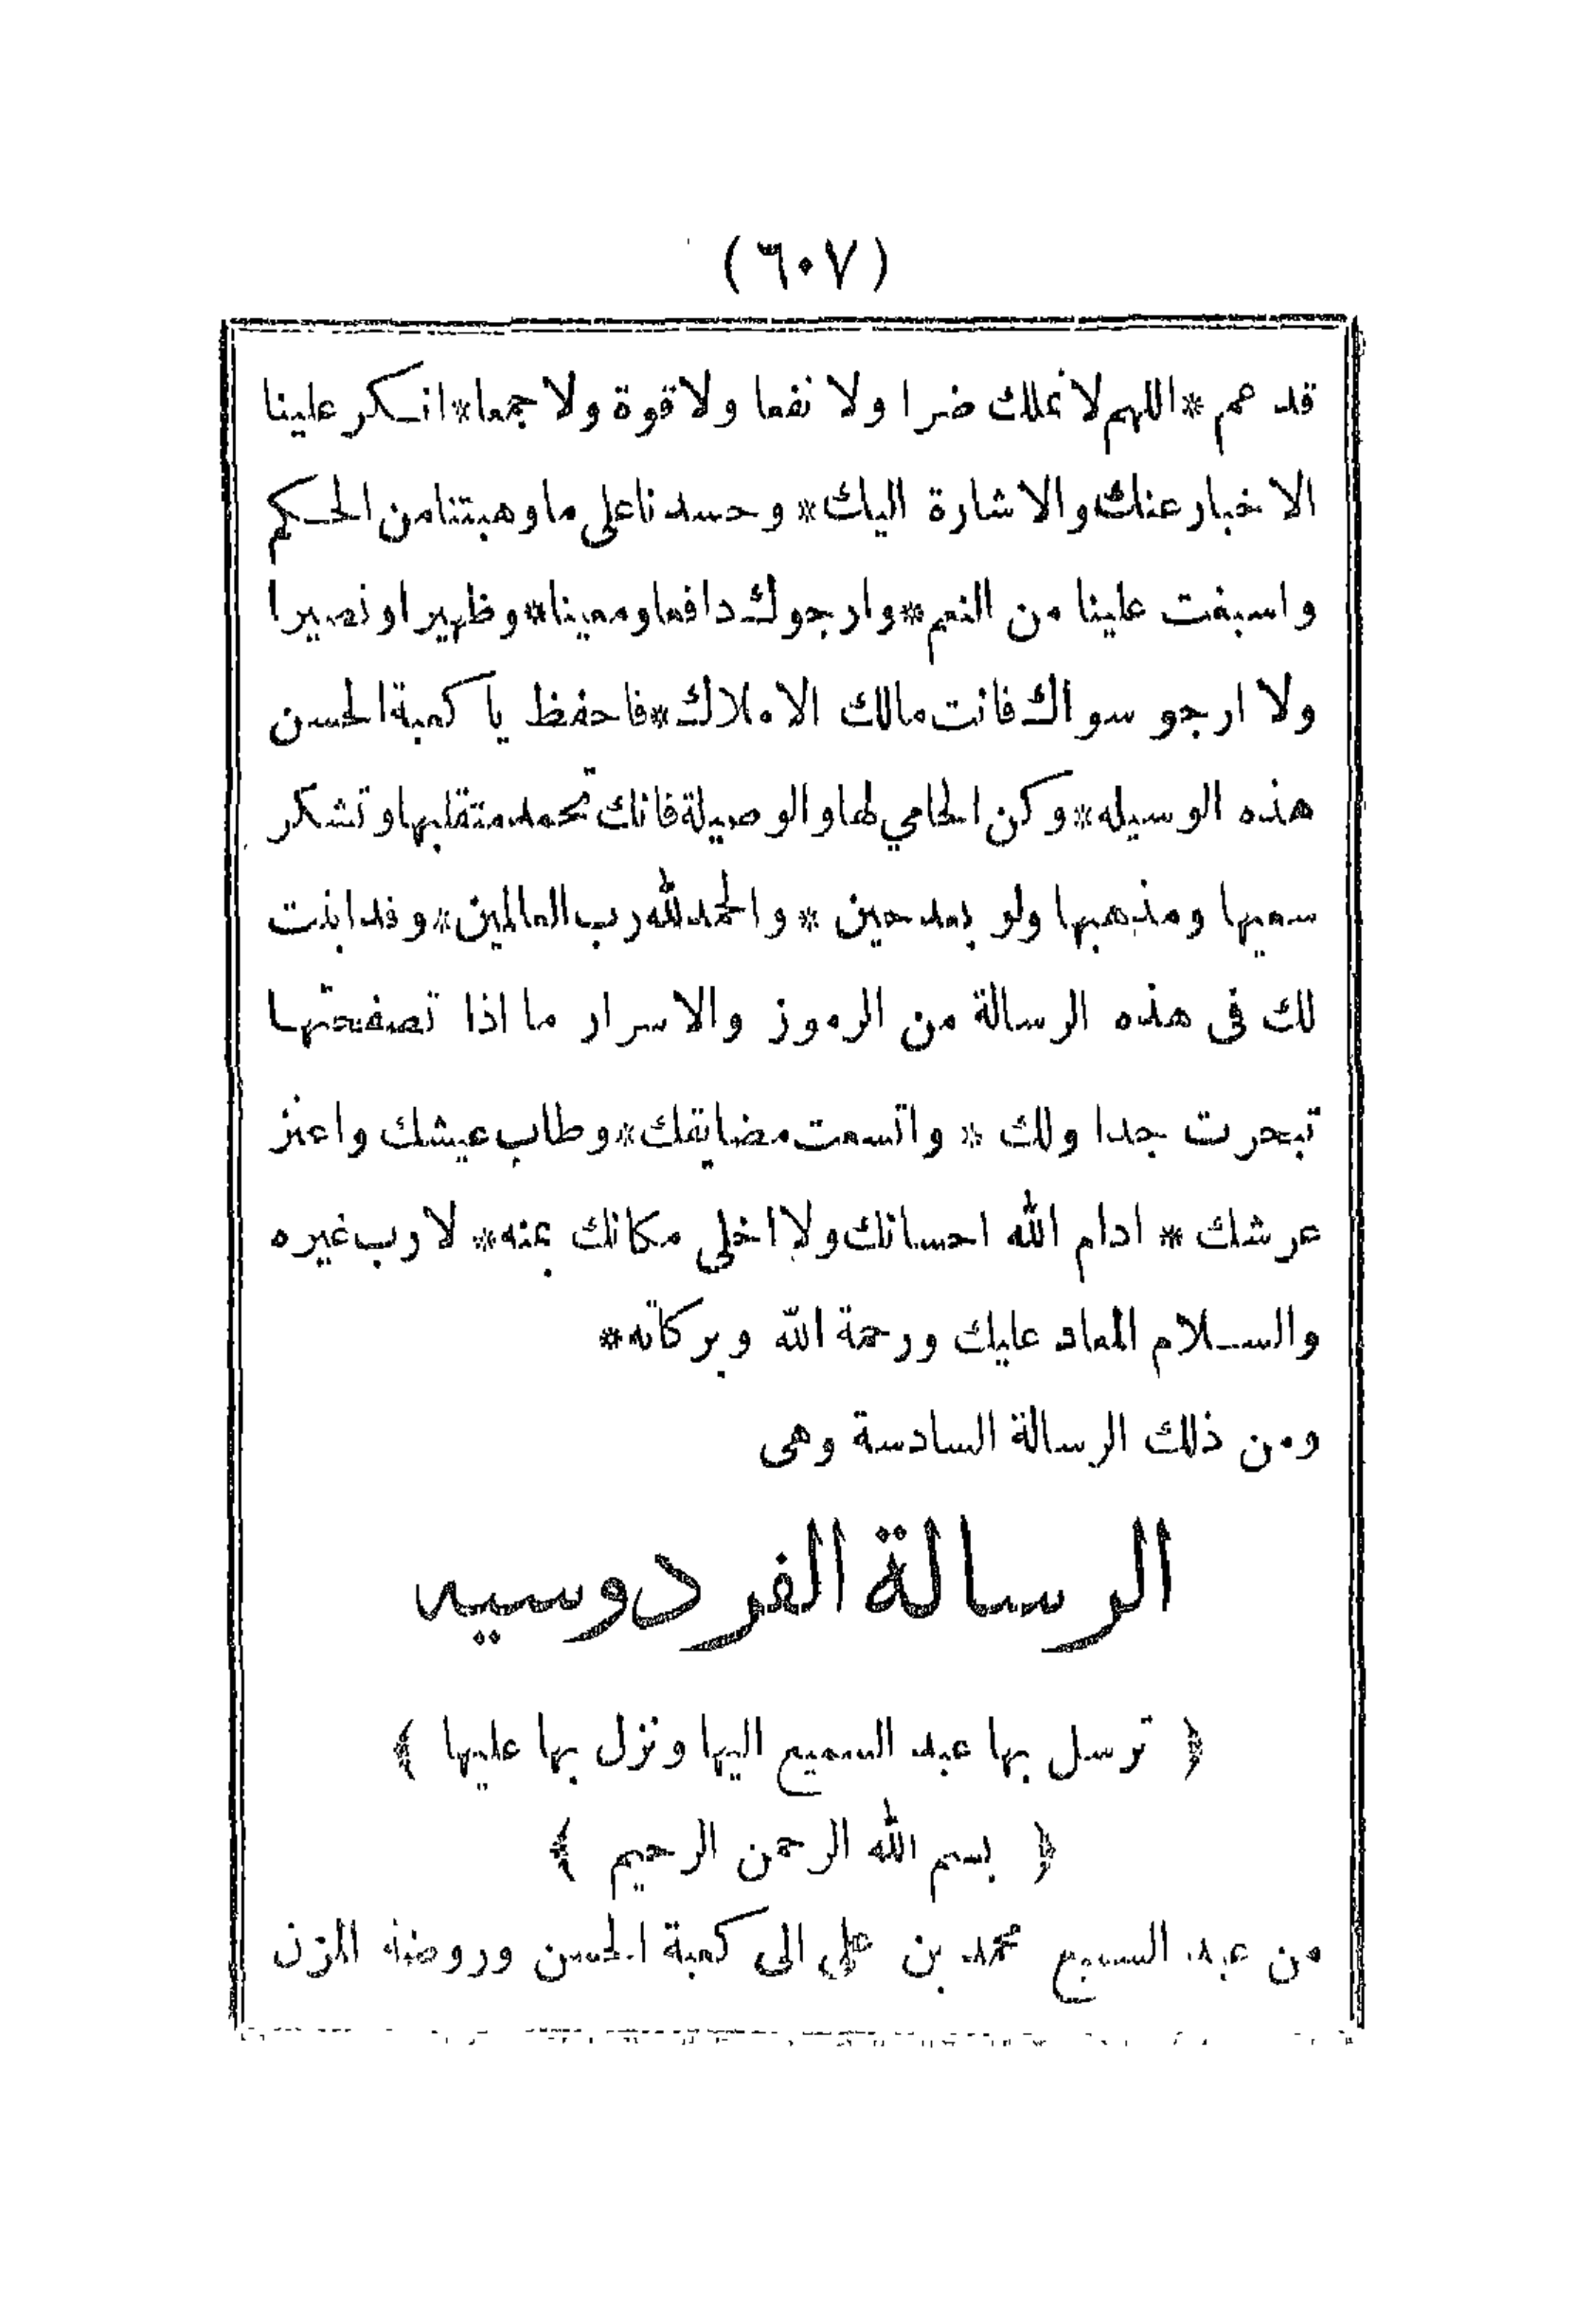 (٦٠٧)
قد عم * اللهم لا نملك ضرا ولا نفعا ولا قوة ولا جمعا * انكر علينا
الاخبار عنك والاشارة اليك * وحسدنا على ما وهبتنا من الحكم
واسبغت علينا من النعم * وارجوك دافعا ومعينا * وظهيرا ونصيرا
ولا ارجو سواك فانت مالك الاملاك * فاحفظ يا كعبة الحسن
هذه الوسيله * وكن الحامي لها والوصيلة فانك تحمد متقلبها وتشكر
سعيها ومذهبها ولو بعد حين * والحمد لله رب العالمين * وقد ابنت
لك فى هذه الرسالة من الرموز والاسرار ما اذا تصفحتها
تبحرت جدا ولك * واتسعت مضايقك * وطاب عيشك واعتز
عرشك * ادام الله احسانك ولا اخلى مكانك عنه * لا رب غيره
والسلام المعاد عليك ورحمة الله وبركاته *
ومن ذلك الرسالة السادسة وهى
الرسالة الفردوسيه
﴿ ترسل بها عبد السميع اليها ونزل بها عليها ﴾
﴿ بسم الله الرحمن الرحيم ﴾
من عبد السميع محمد بن على الى كعبة الحسن وروضة المزن